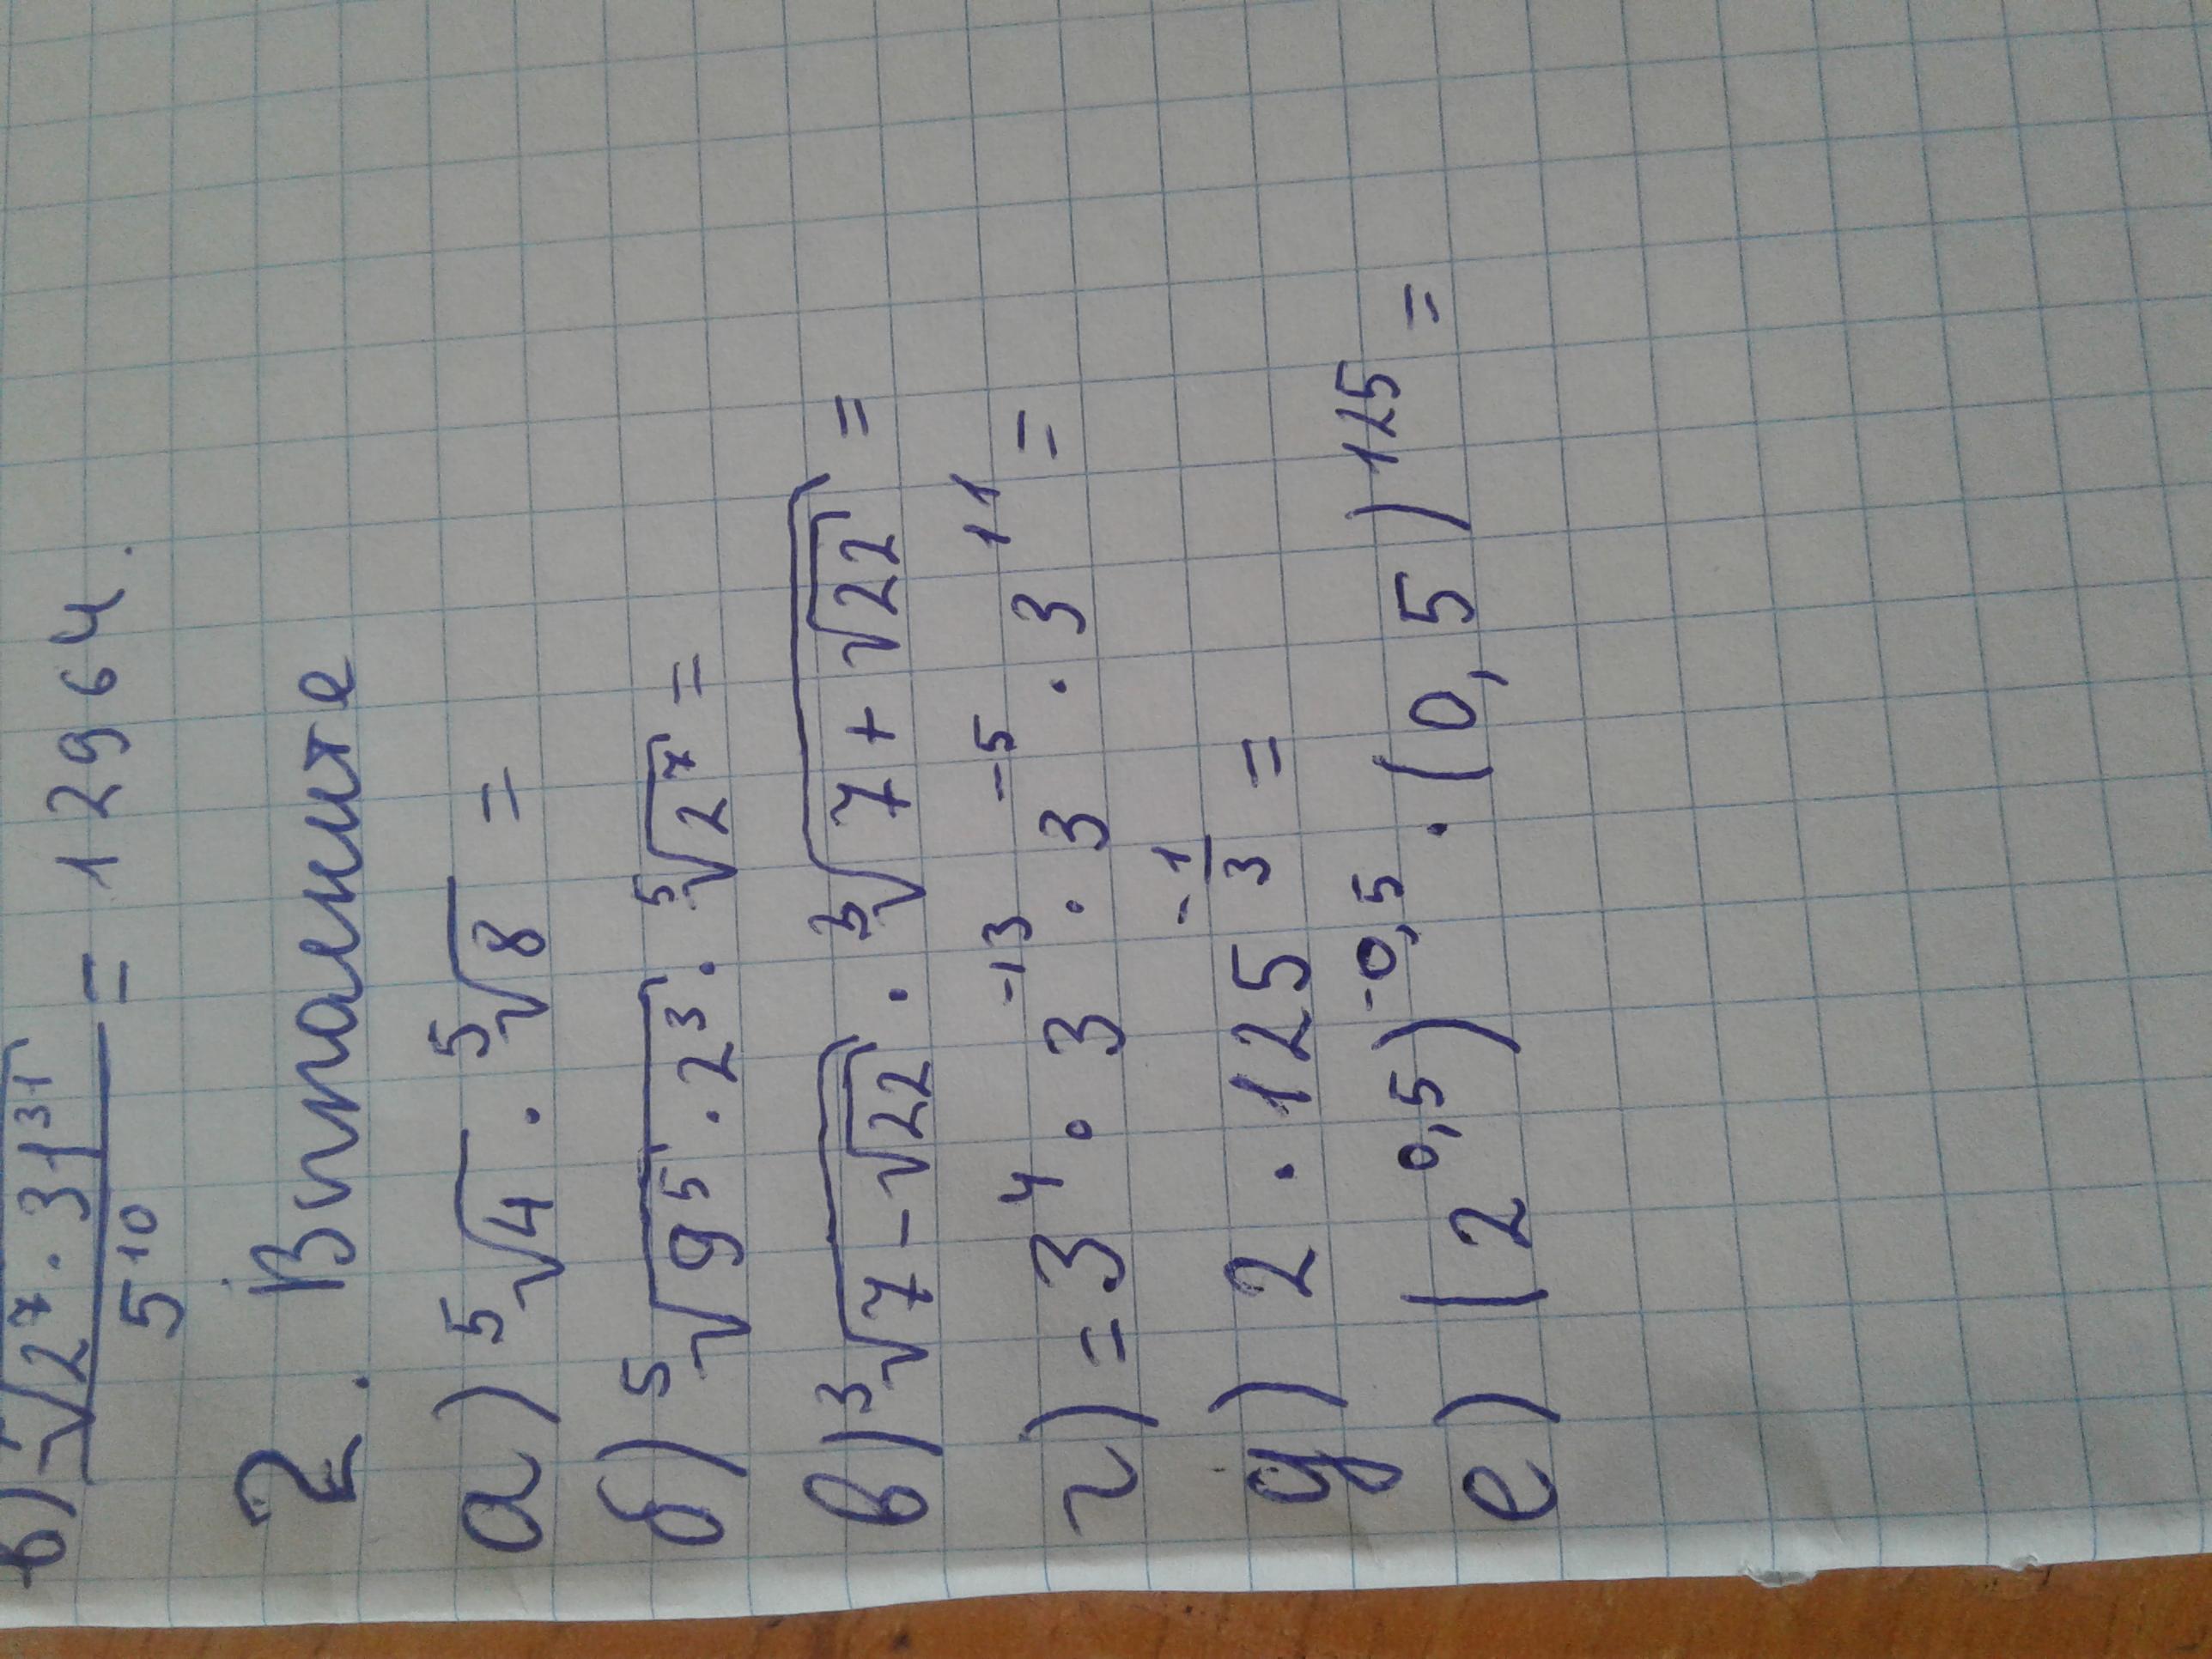 в) √2⁷·31³¹ / 5¹⁰ = 12964.
2. Вычислите
а) ⁵√4 · ⁵√8 =
б) ⁵√(9⁵·2³) · ⁵√(2⁷) =
в) ³√(7-√22) · ³√(7+√22) =
г) = 3⁴ · 3⁻¹³ · 3⁻⁵ · 3¹¹ =
д) 2 · 125^(-1/3) =
е) (2^0,5)^-0,5 · (0,5)^125 =